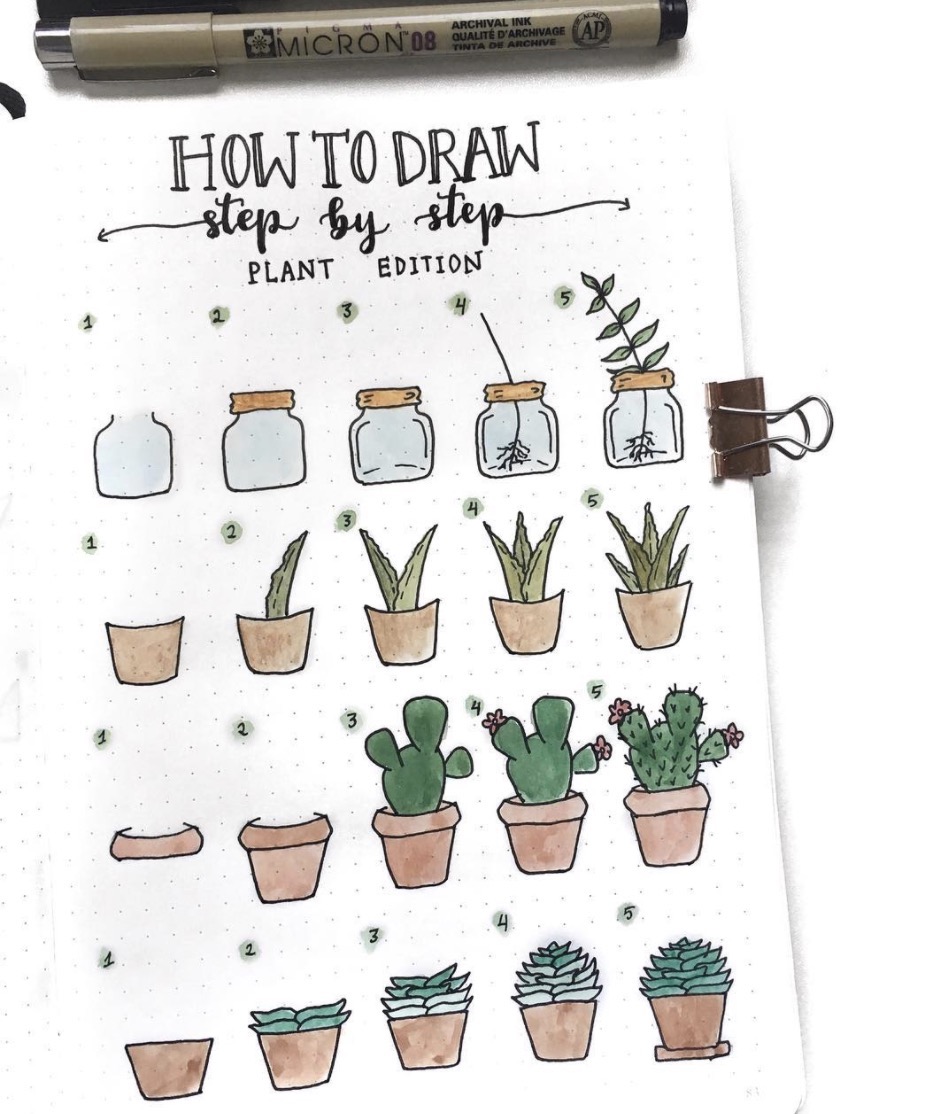 PIGMA
MICRON™ 08
ARCHIVAL INK
QUALITÉ D'ARCHIVAGE
TINTA DE ARCHIVE
ACMI
AP
HOW TO DRAW
step by step
PLANT EDITION
1 2 3 4 5
1 2 3 4 5
1 2 3 4 5
1 2 3 4 5